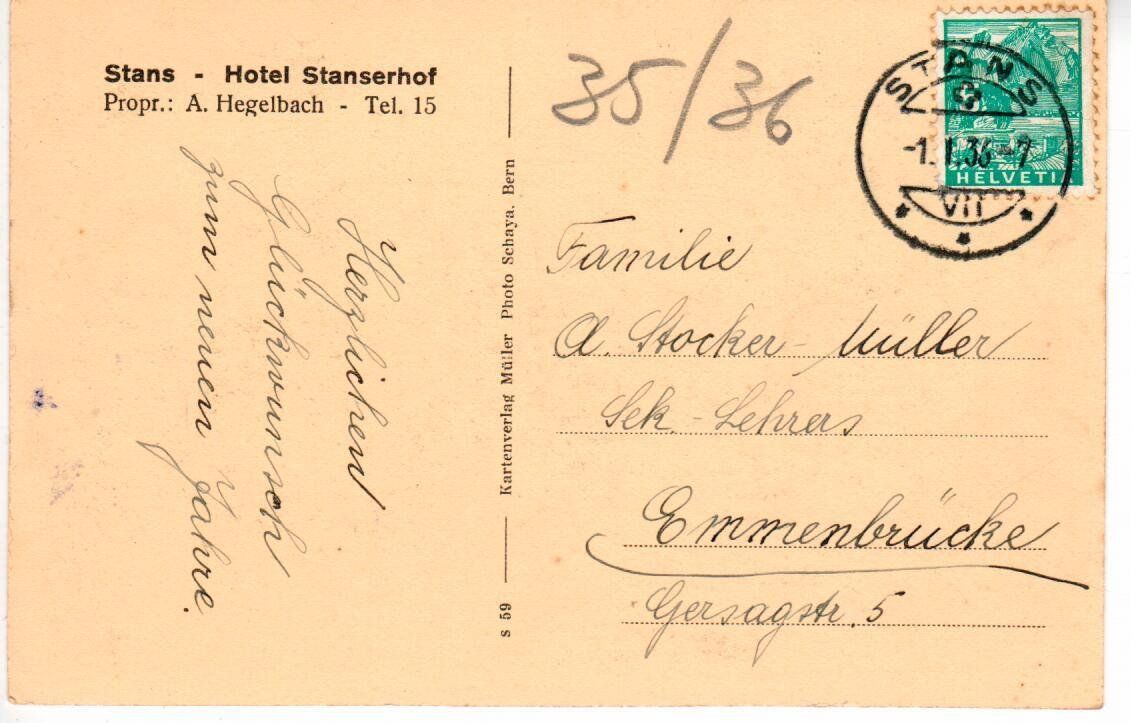 Stans - Hotel Stanserhof
Propr.: A. Hegelbach - Tel. 15
Herzlichen
Glückwunsch
zum neuen Jahre.
s 59 Kartenverlag Müller Photo Schaya. Bern
35/36
STANS
-1.I.36-7
VII
HELVETIA
Familie
A. Stocker-Müller
Sek.-Lehrers
Emmenbrücke
Gersagstr. 5